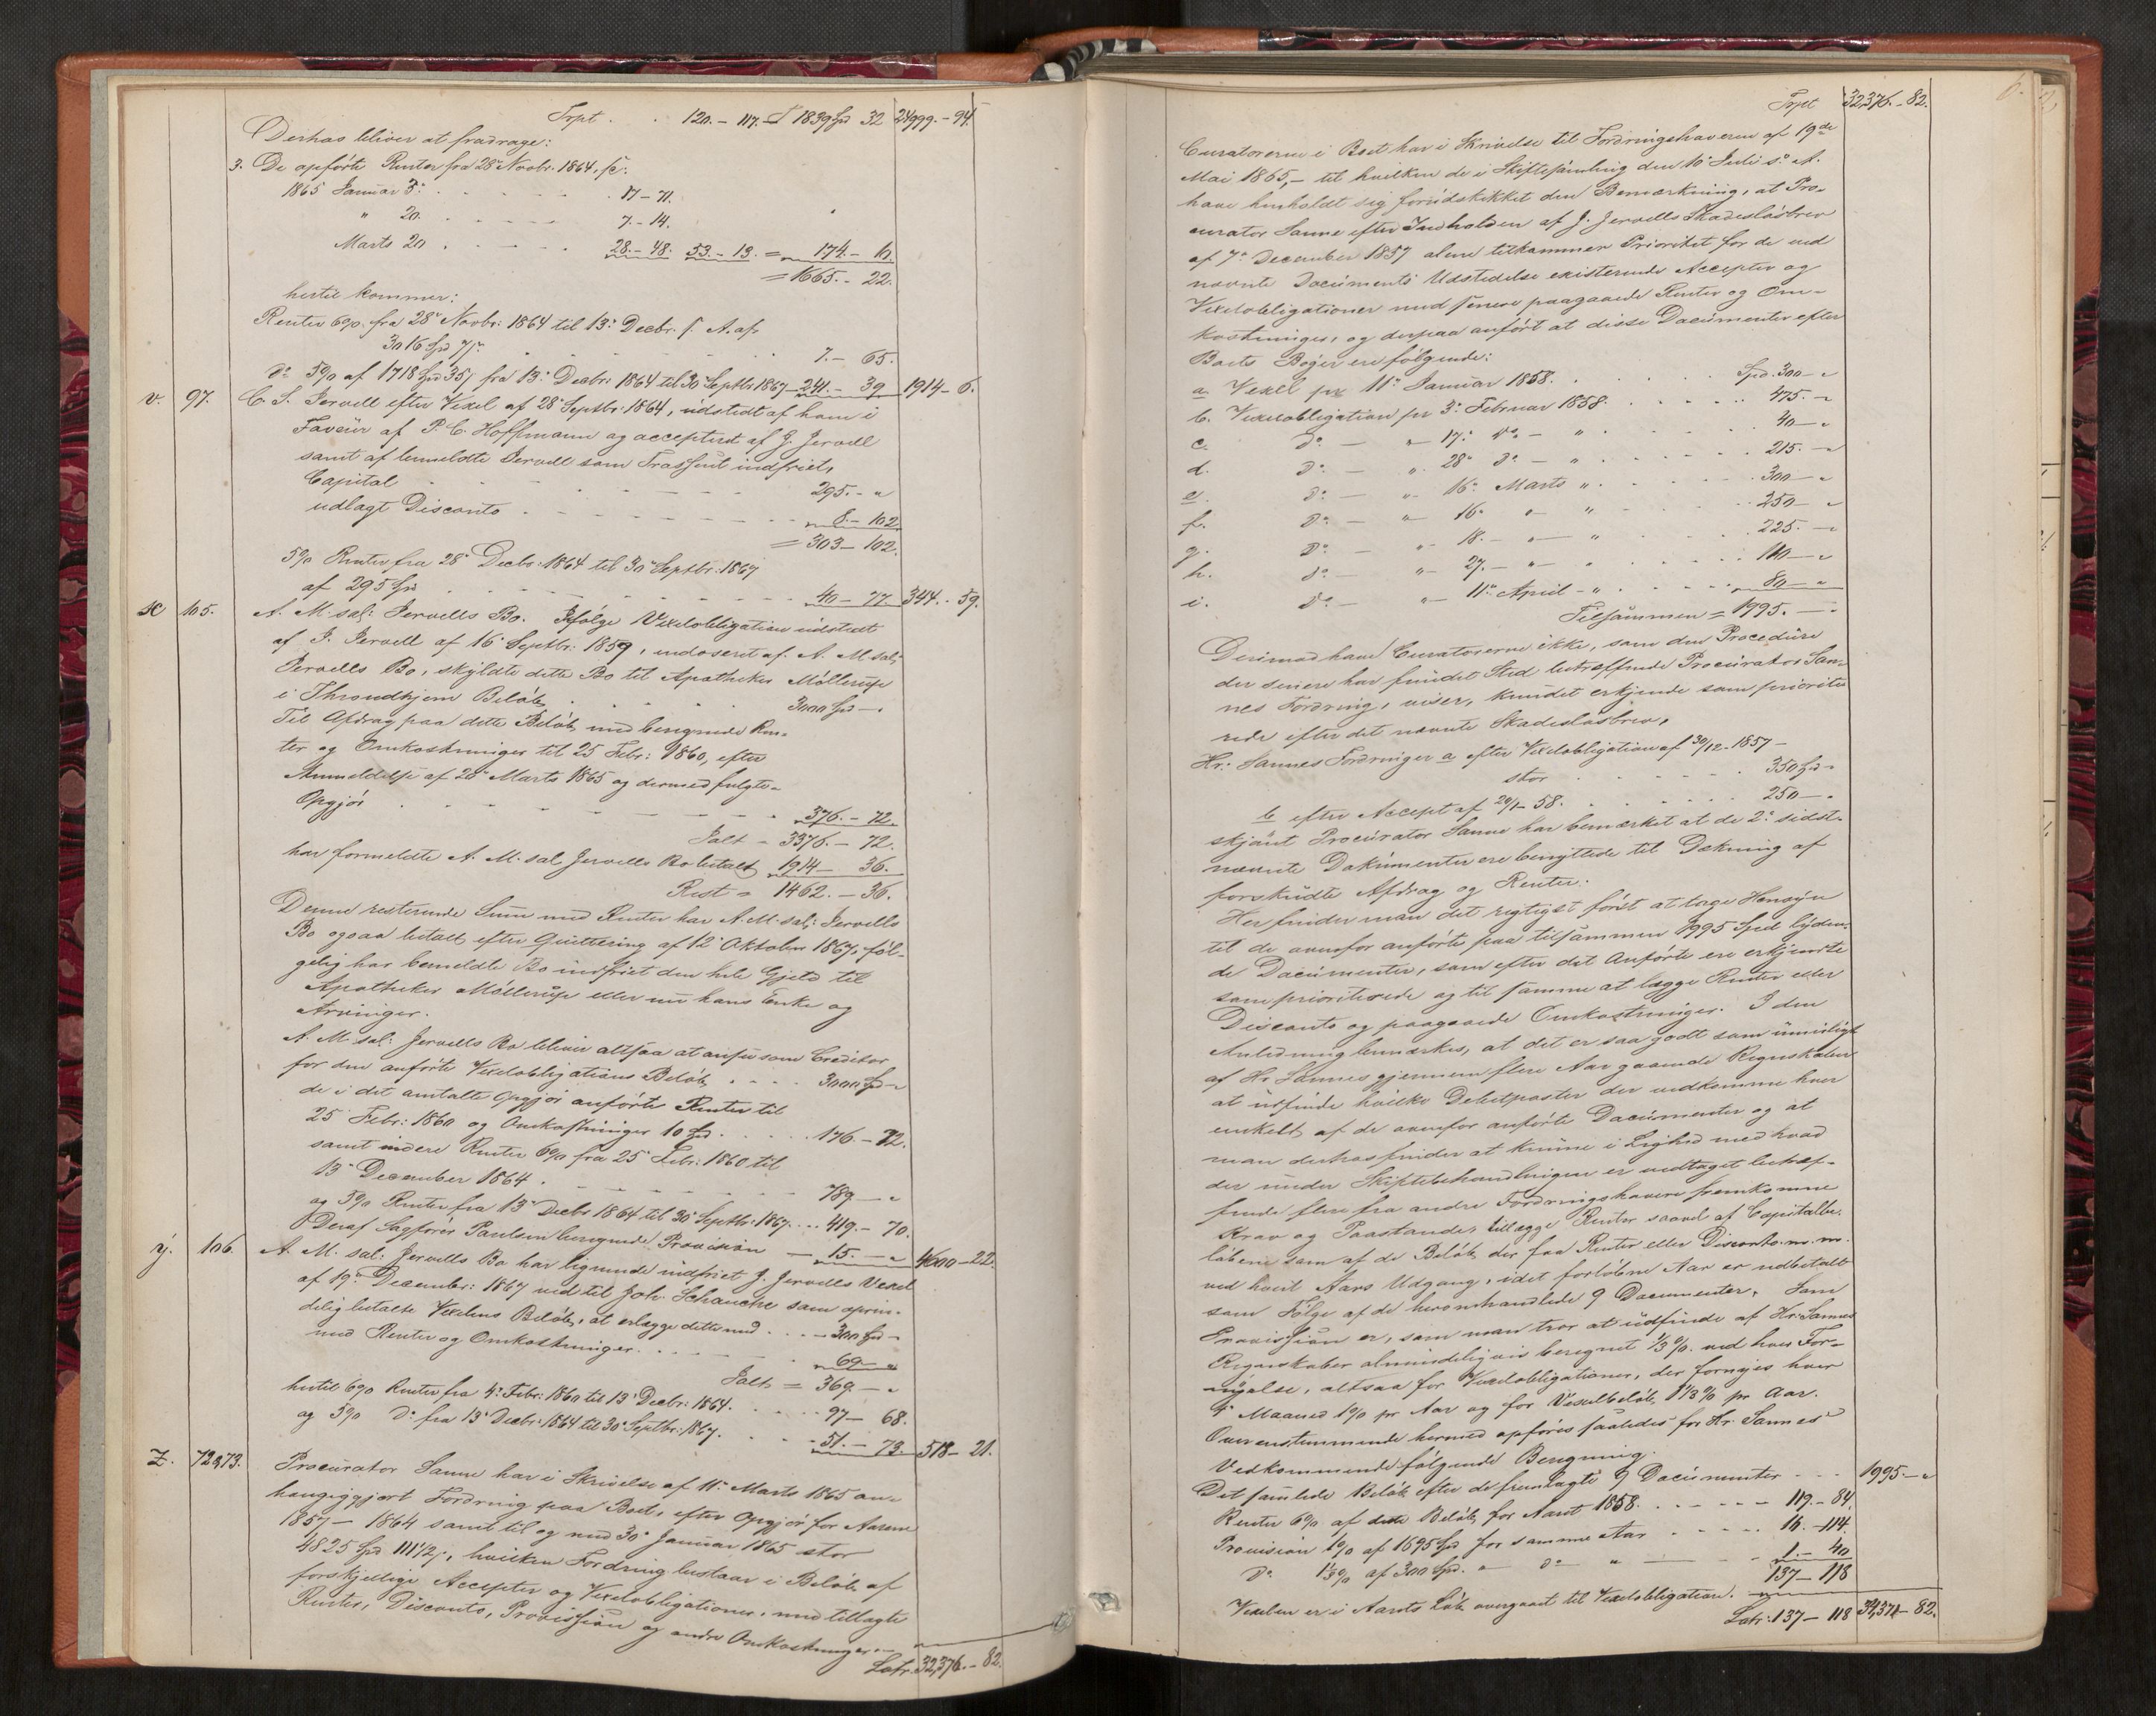 Trpt . . 120. - 117. 1839 Spd 32 24,999. - 94.
Derhos bliver at fradrage:
3. De opførte Renter fra 28de Novbr. 1864,
1865 Januar 3. . . . 17 - 71.
" 20. . . . 7. - 14.
Marts 20 . . . 28. - 48. 53. - 13. = 174. - 10.
= 1665. - 22.
hertil kommer:
Renter 6% fra 28de Novbr: 1864 til 13. Decbr. s. A. af
3016 Spd 7 . . . 7. - 65.
do 5% af 1718 Spd 35 fra 13. Decbr: 1864 til 30 Septbr 1867 - 241. - 39 1914 - 6.
v. 97. C. S. Jervell efter Vexel af 28 Septbr: 1864, udstedt af ham i
Faveur af P. C. Hoffmann og accepteret af J. Jervell
samt af bemeldte Jervell som Trassent indfriet,
Capital . . . 295. - "
udlagt Disconto . . . 8. - 102.
= 303 - 102.
5% Renter fra 28 Decbr: 1864 til 30 Septbr: 1867
af 295 Spd . . . 40 - 77. 344. - 59.
x 105. A. M. sal: Jervells Bo. Ifølge Vexelobligation udstedt
af J. Jervell af 16 Septbr: 1859, endosseret af A. M. sal:
Jervells Bo, skyldte dette Bo til Apotheker Møllerup
i Throndhjem Beløb . . . 3000 Spd - "
Til Afdrag paa dette Beløb med beregnede Ren-
ter og Omkostninger til 25 Febr: 1860, efter
Anmeldelse af 28 Marts 1865 og dermed fulgte
Opgjør . . . 376. - 72.
Ialt = 3376. - 72.
har formeldte A. M. sal Jervells Bo betalt 1914 - 36.
Rest = 1462. - 36.
Denne resterende Sum med Renter har A. M. sal: Jervells
Bo ogsaa betalt efter Quittering af 12 Oktober 1867, føl-
gelig har bemeldte Bo indfriet den hele Gjeld til
Apotheker Møllerup eller nu hans Enke og
Arvinger.
A. M. sal: Jervells Bo bliver altsaa at anføre som Creditor
for den anførte Vexelobligations Beløb . . . 3000 Spd - "
de i det omtalte Opgjør anførte Renter til
25 Febr: 1860 og Omkostninger 10 Spd . . . 176 - 72.
samt videre Renter 6% fra 25 Febr: 1860 til
13 December 1864 . . . 789 - "
og 5% Renter fra 13 Decbr 1864 til 30 Septbr: 1867 . . . 419. - 70.
Deraf Sagfører Paulsen beregnede Provision - 15. - " 4400 - 22.
y. 106. A. M. sal: Jervells Bo har ligesaa indfriet J. Jervells Vexel
af 19 December: 1867 ved til Joh. Schanche som oprin-
delig betalte Vexlens Beløb, at erlægge dette med . . . 300 Spd -
med Renter og Omkostninger . . . 69 - "
Ialt = 369. - "
hertil 6% Renter fra 4. Febr: 1860 til 13 Decbr: 1864 . . . 97 - 68.
og 5% do fra 13 Decbr: 1864 til 30 Septbr: 1867. . . . 51. - 73. 518 - 21.
z. 72&73. Procurator Sanne har i Skrivelse af 11. Marts 1865 an-
hængiggjort Fordring paa Boet, efter Opgjør for Aarene
1857 - 1864 samt til og med 30 Januar 1865 stor
4825 Spd 111 1/2, hvilken Fordring bestaar i Beløb af
forskjellige Accepter og Vexelobligationer, med tillagte
Renter, Disconto, Provission og andre Omkostninger
Latr. 32,376. - 82.
6.
Trpt 32,376. - 82.
Curatorerne i Boet har i Skrivelse til Fordringshaveren af 19de
Mai 1865, - til hvilken de i Skiftesamling den 10 Juli s. A.
have henholdt sig forudskikket den Bemærkning, at Pro-
curator Sanne efter Indholden af J. Jervells Skadesløsbrev
af 7. December 1857 alene tilkommer Prioritet for de ved
nævnte Documents Udstedelse existerende Accepter og
Vexelobligationer med senere paagaaede Renter og Om-
kostninger, og derpaa anført at disse Documenter efter
Boets Bøger ere følgende:
a. Vexel pr 11. Januar 1858. . . . Spd. 300 - "
b. Vexelobligation pr 3. Februar 1858. . . . 475. - "
c. do - " 17. do - " . . . 40 - "
d. do - " 28 do - " . . . 215. - "
e. do - " 16. Marts " . . . 300 - "
f. do - " 16. " - " . . . 250 - "
g. do - " 18. - " - " . . . 225. - "
h. do - " 27. - " - " . . . 110 - "
i. do - " 11. April - " . . . 80 - "
Tilsammen = 1995. - "
Derimod have Curatorerne ikke, som den Procedure
der senere har fundet Sted betræffende Procurator San-
nes Fordring, viser, kundet erkjende som priorite-
rede efter det nævnte Skadesløsbrev,
Hr: Sannes Fordringer a efter Vexelobligation af 30/12 - 1857 -
stor . . . 350 Spd -
b efter Accept af 20/1 - 58. . . . 250 - "
skjønt Procurator Sanne har bemærket at de 2. sidst-
nævnte Dokumenter ere benyttede til Dækning af
forskudte Afdrag og Renter.
Her finder man det rigtigst først at tage Hensyn
til de ovenfor anførte paa tilsammen 1995 Spd lyden-
de Documenter, som efter det Anførte ere erkjendte
som prioriterede og til samme at lægge Renter eller
Disconto og paagaaede Omkostninger. I den
Anledning bemærkes, at det er saa godt som umuligt
af Hr Sannes gjennem flere Aar gaaende Regnskaber
at udfinde hvilke Debetposter der vedkomme hver
enkelt af de ovenfor anførte Documenter og at
man derhos finder at kunne i Lighed med hvad
der under Skiftebehandlingen er vedtaget betræf-
fende flere fra andre Fordringshavere fremkomne
Krav og Paastande, tillægge Renter saavel af Capitalbe-
løbene som af de Beløb, der for Renter eller Disconto m. m.
ved hvert Aars Udgang, i det forløbne Aar er udbetalt
som Følge af de heromhandlede 9 Documenter. Som
Provission er, som man tror at udfinde af Hr: Sannes
Regnskaber almindeligvis beregnet 1/3 % ved hver For-
nyelse, altsaa for Vexelobligationer, der fornyes hver
4. Maaned 1% pr Aar og for Vexelbeløb 1 1/3 % pr Aar.
Overensstemmende hermed opføres saaledes for Hr. Sannes
Vedkommende følgende Beregning.
Det samlede Beløb efter de fremlagte 9 Documenter . . . 1995. - "
Renter 6% af dette Beløb for Aaret 1858. . . . 119. - 84.
Provision 1% af 1695 Spd for samme Aar . . . 16. - 114.
do 1 1/3 % af 300 Spd. " do " . . . 1. - 40
137 - 118
Vexlen er i Aarets Løb overgaaet til Vexelobligation.
Latr: 137 - 118 34,371 - 82.